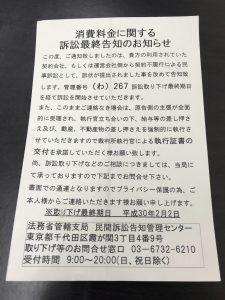 消費料金に関する
訴訟最終告知のお知らせ
この度、ご通知致しましたのは、貴方の利用されていた
契約会社、もしくは運営会社側から契約不履行による民
事訴訟として、訴状が提出されました事を改めて告知致
します。管理番号(わ)267 訴訟取り下げ最終期日
を経て訴訟を開始させていただきます。
また、このままご連絡なき場合は、原告側の主張が全面
的に受理され、執行官立ち会いの下、給与等の差し押さ
え及び、動産、不動産物の差し押さえを強制的に執行さ
せていただきますので裁判所執行官による執行証書の
交付を承諾していただく様お願い致します。
尚、訴訟取り下げなどのご相談につきましては、当局に
て承っておりますので下記までお問合せ下さい。
書面での通達となりますのでプライバシー保護の為、ご
本人様からご連絡いただきます様お願い申し上げます。
※取り下げ最終期日 平成30年2月2日
法務省管轄支局 民間訴訟告知管理センター
東京都千代田区霞が関3丁目4番9号
取り下げ等のお問合せ窓口 03-6732-6210
受付時間 9:00~20:00(日、祝日除く)